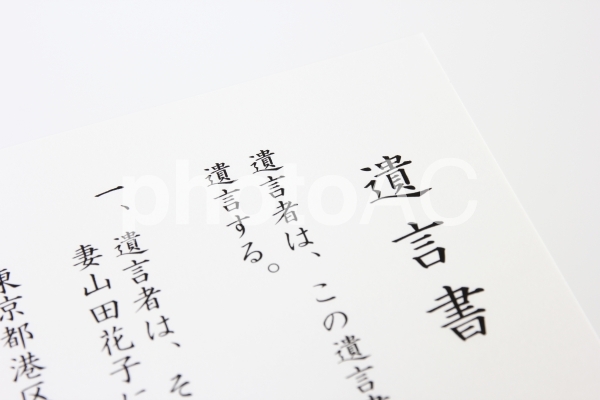 遺言書
遺言者は、この遺言
遺言する。
一、遺言者は、そ
妻山田花子に
東京都港区
photoAC